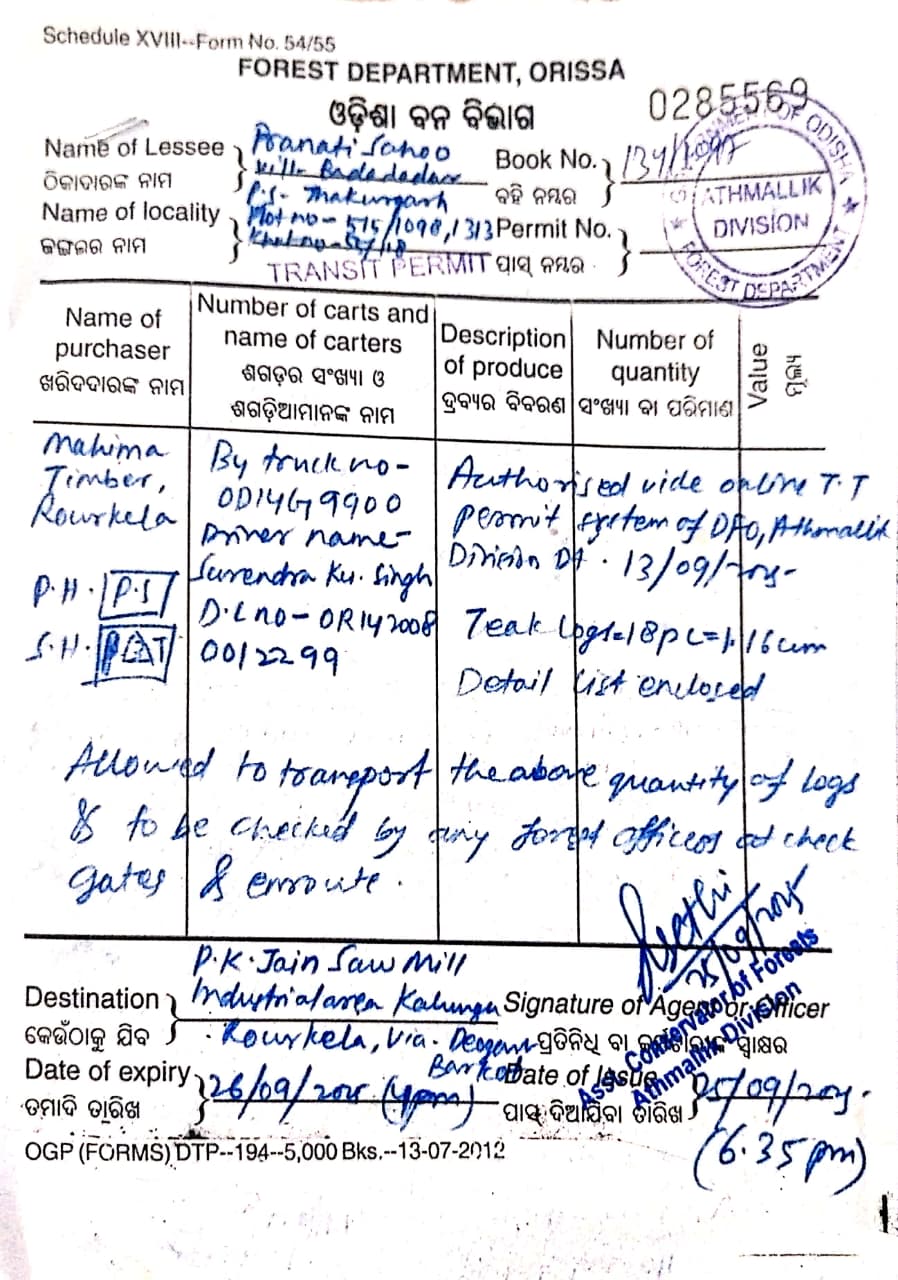 Schedule XVIII--Form No. 54/55
FOREST DEPARTMENT, ORISSA
ଓଡ଼ିଶା ବନ ବିଭାଗ
0285569
Name of Lessee
ଠିକାଦାରଙ୍କ ନାମ
Pranati Sahoo
Vill- Badadadar
P.S- Thakurgarh
Book No.
ବହି ନମ୍ବର
Name of locality
ଜଙ୍ଗଲର ନାମ
Plot no - 515/1098, 1313
Permit No.
ପାସ୍ ନମ୍ବର
TRANSIT PERMIT
GOVERNMENT OF ODISHA
ATHMALLIK
DIVISION
FOREST DEPARTMENT
Name of purchaser
ଖରିଦଦାରଙ୍କ ନାମ
Number of carts and name of carters
ଶଗଡ଼ର ସଂଖ୍ୟା ଓ
ଶଗଡ଼ିଆମାନଙ୍କ ନାମ
Description of produce
ଦ୍ରବ୍ୟର ବିବରଣ
Number of quantity
ସଂଖ୍ୟା ବା ପରିମାଣ
Value
ମୂଲ୍ୟ
Mahima
Timber,
Rourkela
P.H. P.S
S.H.
By truck no-
OD14G9900
Driver name-
Surendra Ku. Singh
D.L no - OR142008
0012299
Authorised vide online T.T
permit system of DFO, Athmallik
Division Dt. 13/09/2025-
Teak logs=18pc=1.16cum
Detail list enclosed
Allowed to transport the above quantity of logs
& to be checked by any forest officers at check
gates & enroute.
25/09/2025
Asst. Conservator of Forests
Athmallik Division
Destination
କେଉଁଠାକୁ ଯିବ
P.K. Jain Saw Mill
Industrial area Kalunga
Rourkela, Via. Deogarh
Barkot
Signature of Agent or Officer
ପ୍ରତିନିଧି ବା କର୍ମଚାରୀଙ୍କ ସ୍ୱାକ୍ଷର
Date of expiry
ତମାଦି ତାରିଖ
26/09/2025 (4pm)
Date of Issue
ପାସ୍ ଦିଆଯିବା ତାରିଖ
25/09/2025.
(6.35 pm)
OGP (FORMS) DTP--194--5,000 Bks.--13-07-2012